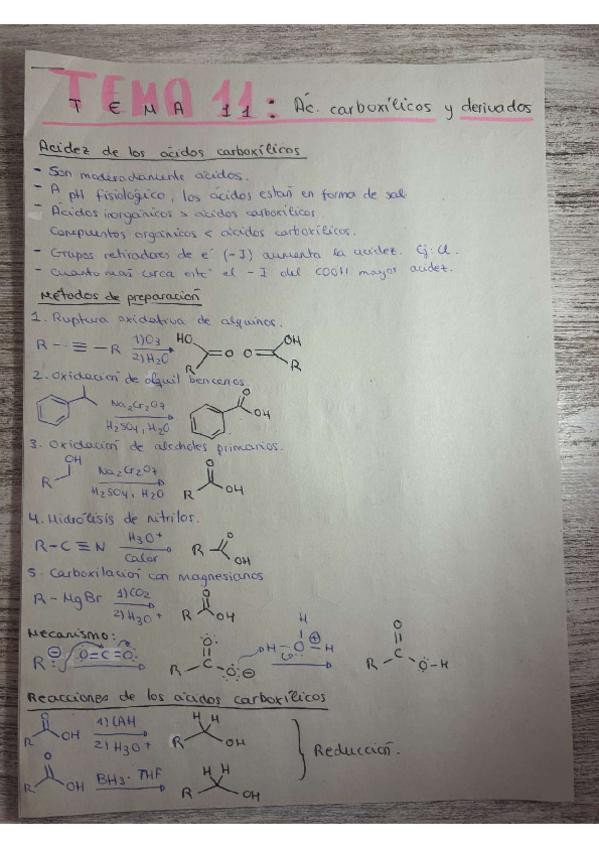 TEMA 11: Ác. carboxílicos y derivados
Acidez de los ácidos carboxílicos
- Son moderadamente ácidos.
- A pH fisiológico, los ácidos están en forma de sal
- Ácidos inorgánicos > ácidos carboxílicos.
Compuestos orgánicos < ácidos carboxílicos.
- Grupos retiradores de e⁻ (-I) aumenta la acidez. Ej: Cl.
- Cuanto más cerca esté el -I del COOH mayor acidez.
Métodos de preparación
1. Ruptura oxidativa de alquinos.
R-≡-R 1) O3 2) H2O HO O R O OH R
2. Oxidación de alquil bencenos.
Na2Cr2O7 H2SO4, H2O O OH
3. Oxidación de alcoholes primarios.
R OH Na2Cr2O7 H2SO4, H2O R O OH
4. Hidrólisis de nitrilos.
R-C≡N H3O+ Calor R O OH
5. Carboxilación con magnesianos
R-MgBr 1) CO2 2) H3O+ R O OH
Mecanismo:
R:⊖ O=C=O R C O O⊖ H-O⊕-H H R C O O-H
Reacciones de los ácidos carboxílicos
R O OH 1) LAH 2) H3O+ R H H OH
Reducción.
R O OH BH3·THF R H H OH